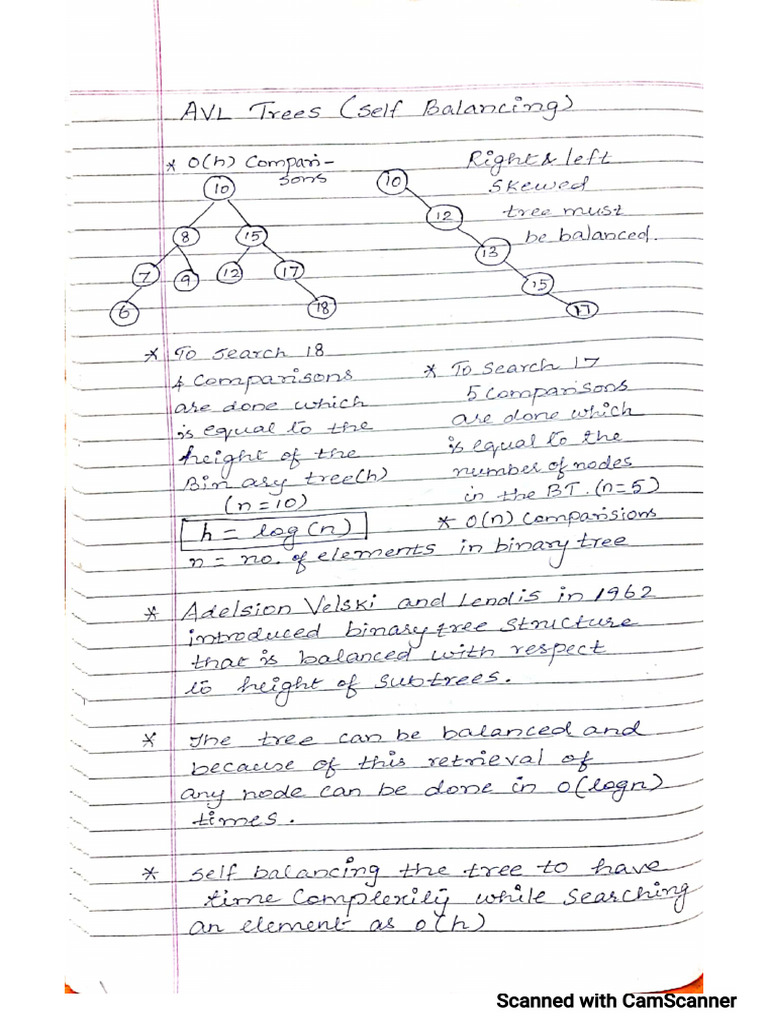 AVL Trees (Self Balancing)
* O(h) Compari-
sons
10
8 15
7 9 12 17
6 18
10
12
13
15
17
Right & left
skewed
tree must
be balanced.
* To search 18
4 comparisons
are done which
is equal to the
height of the
Binary tree(h)
(n=10)
h = log(n)
* To search 17
5 comparisons
are done which
is equal to the
number of nodes
in the BT. (n=5)
* O(n) comparisions
n = no. of elements in binary tree
* Adelsion Velski and Lendis in 1962
introduced binary tree structure
that is balanced with respect
to height of subtrees.
* The tree can be balanced and
because of this retrieval of
any node can be done in O(logn)
times.
* Self balancing the tree to have
time complexity while searching
an element as O(h)
Scanned with CamScanner